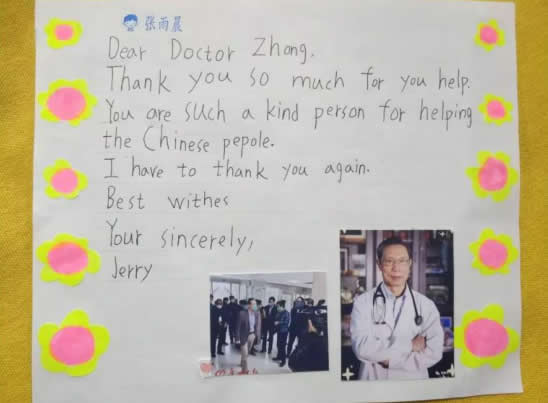 张雨晨
Dear Doctor Zhong.
Thank you so much for you help.
You are such a kind person for helping
the Chinese pepole.
I have to thank you again.
Best withes
Your sincerely,
Jerry